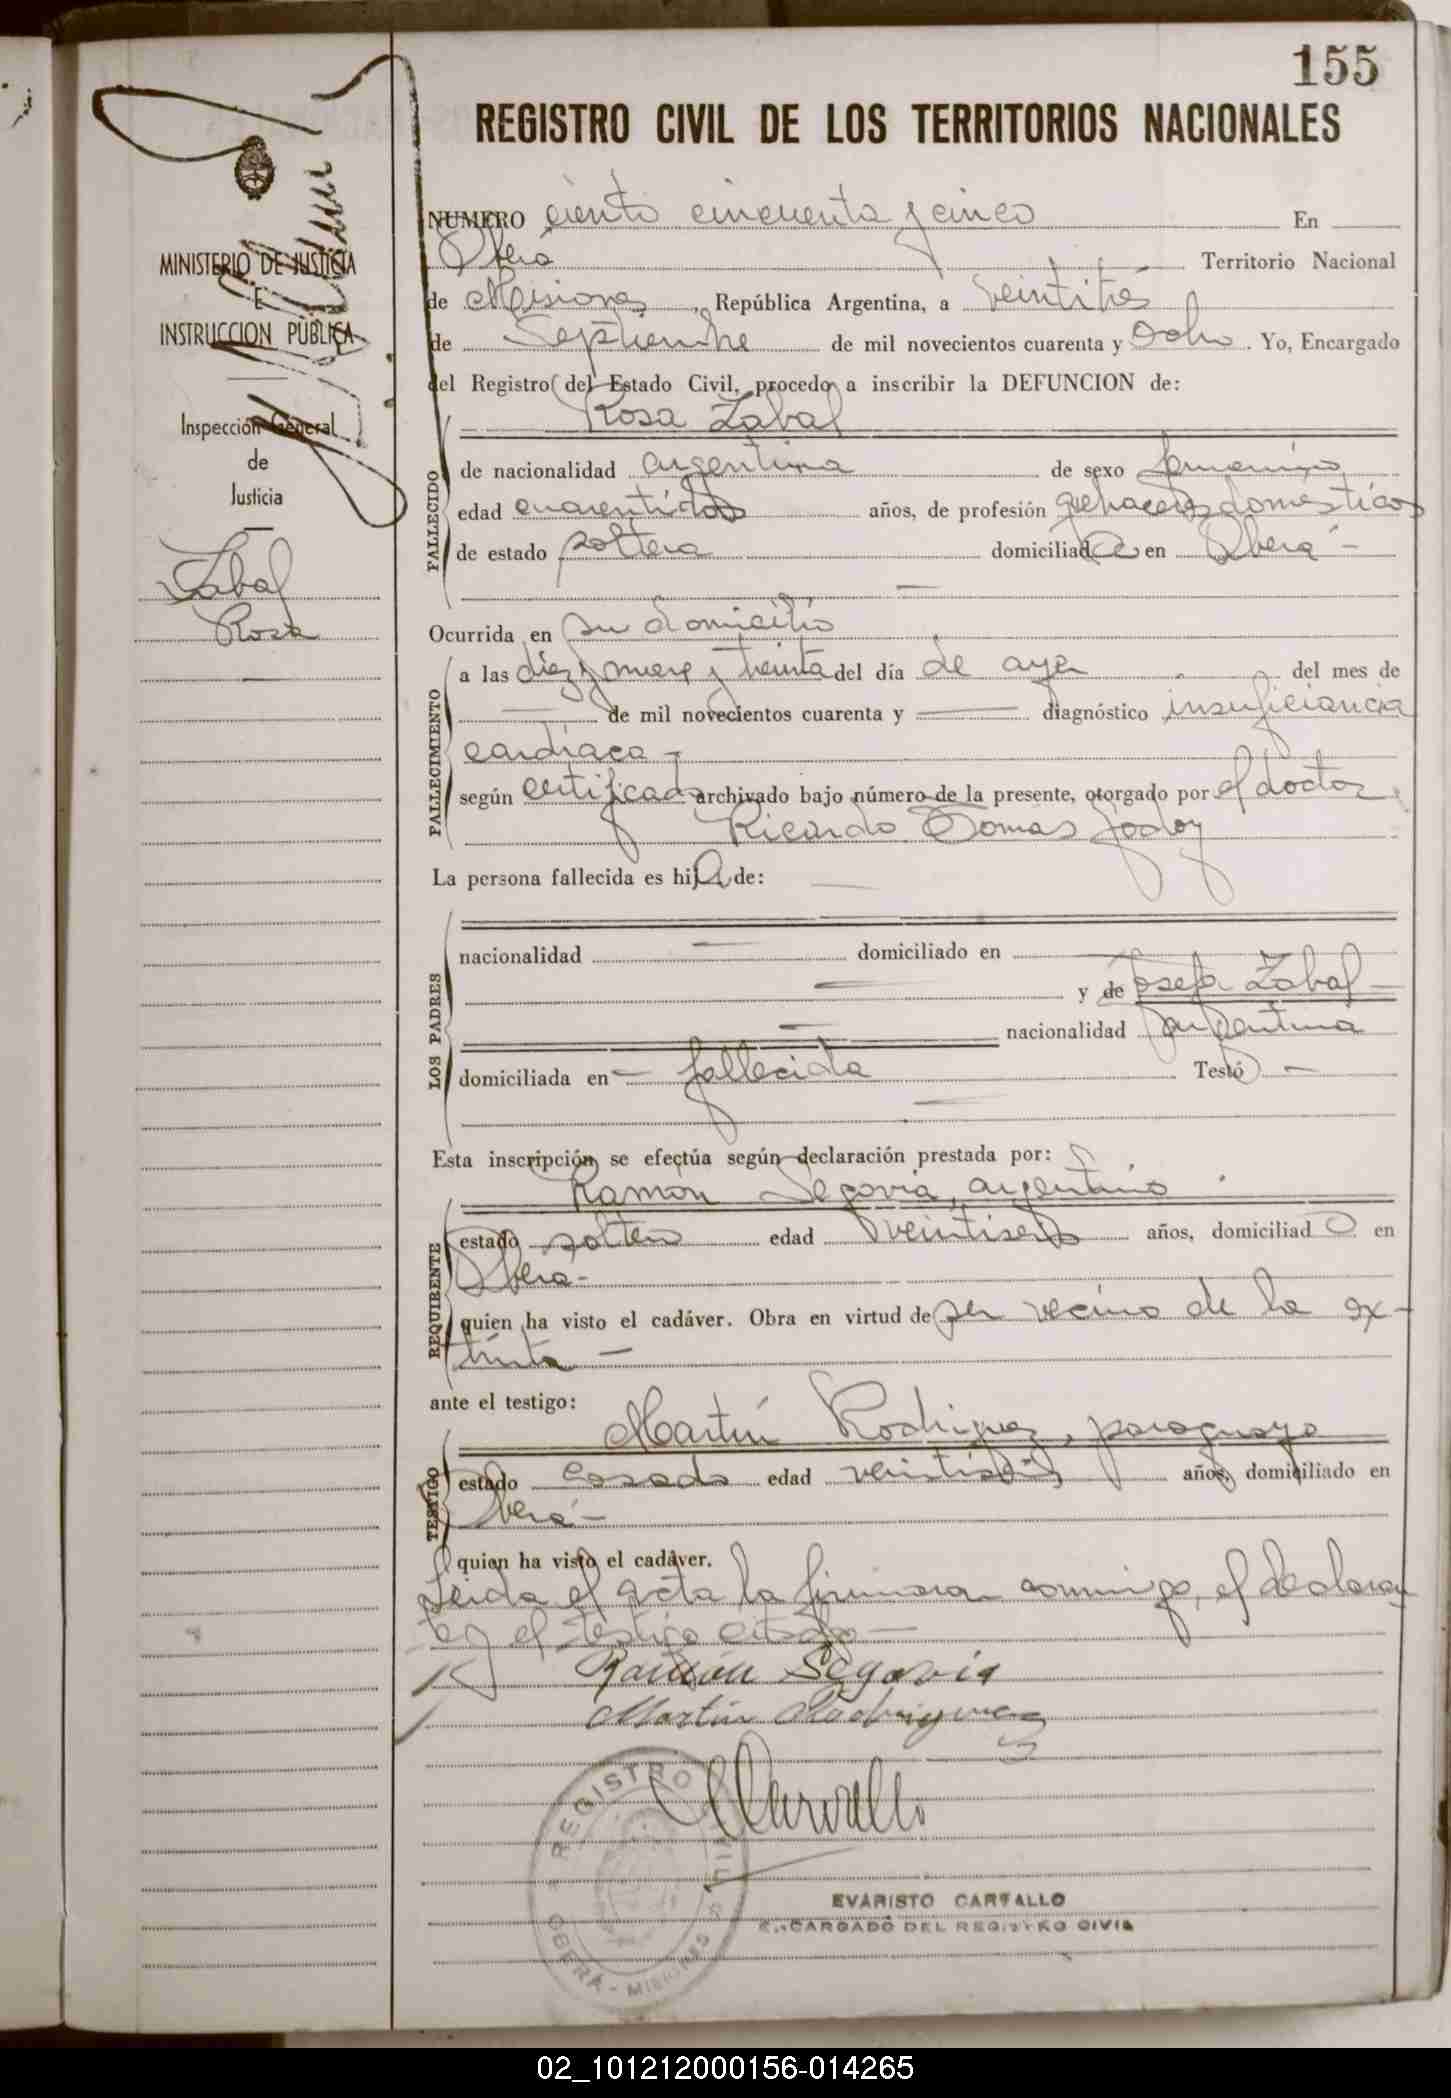 155
REGISTRO CIVIL DE LOS TERRITORIOS NACIONALES
MINISTERIO DE JUSTICIA
E
INSTRUCCION PUBLICA
Inspección General
de
Justicia
Zabal
Rosa
NUMERO ciento cincuenta y cinco En
Oberá Territorio Nacional
de Misiones, República Argentina, a veintitrés
de Septiembre de mil novecientos cuarenta y ocho. Yo, Encargado
del Registro del Estado Civil, procedo a inscribir la DEFUNCION de:
Rosa Zabal
FALLECIDO
de nacionalidad argentina de sexo femenino
edad cuarentidos años, de profesión quehaceres domésticos
de estado soltera domiciliada en Oberá -
Ocurrida en su domicilio
FALLECIMIENTO
a las diez y nueve y treinta del día de ayer del mes de
de mil novecientos cuarenta y diagnóstico insuficiencia
cardíaca -
según certificado archivado bajo número de la presente, otorgado por el doctor
Ricardo Tomás Godoy
La persona fallecida es hija de:
LOS PADRES
nacionalidad domiciliado en
y de Josefa Zabal
nacionalidad argentina
domiciliada en - fallecida Testó -
Esta inscripción se efectúa según declaración prestada por:
Ramón Segovia, argentino
REQUIRENTE
estado soltero edad veintiseis años, domiciliado en
Oberá -
quien ha visto el cadáver. Obra en virtud de ser vecino de la ex-
tinta -
ante el testigo:
Martín Rodriguez, paraguayo
TESTIGO
estado casado edad años, domiciliado en
Oberá -
quien ha visto el cadáver.
Leida el acta la firmaron conmigo, el declaran
te y el testigo citado -
Ramón Segovia
Martín Rodriguez
Carvallo
REGISTRO CIVIL
OBERÁ - MISIONES
EVARISTO CARVALLO
ENCARGADO DEL REGISTRO CIVIL
02_101212000156-014265